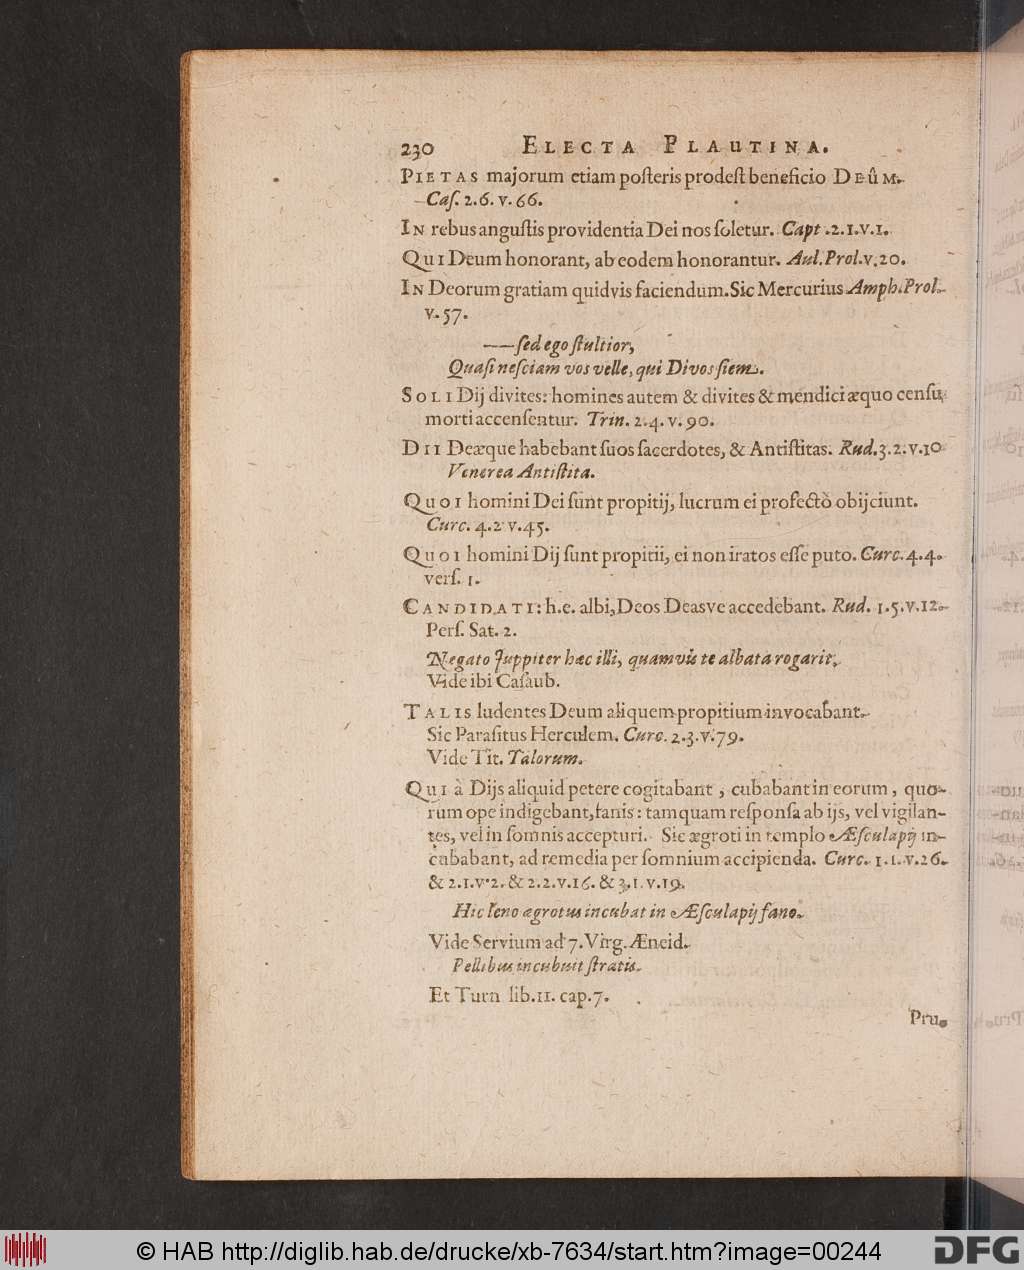 230 ELECTA PLAUTINA.
PIETAS majorum etiam poſteris prodeſt beneficio DEÛM.
Caſ. 2.6. v. 66.
IN rebus anguſtis providentia Dei nos ſoletur. Capt .2.1.v.1.
QUI Deum honorant, ab eodem honorantur. Aul. Prol.v.20.
IN Deorum gratiam quidvis faciendum. Sic Mercurius Amph. Prol.
v. 57.
—— ſed ego ſtultior,
Quaſi neſciam vos velle, qui Divos ſiem.
SOLI Dij divites: homines autem & divites & mendici æquo cenſu,
morti accenſentur. Trin. 2.4. v. 90.
DII Deæque habebant ſuos ſacerdotes, & Antiſtitas. Rud. 3.2. v.10
Venerea Antiſtita.
QUOI homini Dei ſunt propitij, lucrum ei profectò obijciunt.
Curc. 4.2 v.45.
QUOI homini Dij ſunt propitii, ei non iratos eſſe puto. Curc. 4.4.
verſ. 1.
CANDIDATI: h.e. albi, Deos Deasve accedebant. Rud. 1.5.v.12.
Perſ. Sat. 2.
Negato Juppiter hæc illi, quamvis te albata rogarit,
Vide ibi Caſaub.
TALIS ludentes Deum aliquem propitium invocabant.
Sic Paraſitus Herculem. Curc. 2.3.v.79.
Vide Tit. Talorum.
QUI à Dijs aliquid petere cogitabant , cubabant in eorum , quo-
rum ope indigebant, fanis: tamquam reſponſa ab ijs, vel vigilan-
tes, vel in ſomnis accepturi. Sic ægroti in templo Æſculapij in-
cubabant, ad remedia per ſomnium accipienda. Curc. 1.1.v.26.
& 2.1.v.2. & 2.2.v.16. & 3.1.v.19.
Hic leno ægrotus incubat in Æſculapij fano.
Vide Servium ad 7. Virg. Æneid.
Pellibus incubuit ſtratis.
Et Turn lib.11. cap.7.
Pru-
© HAB http://diglib.hab.de/drucke/xb-7634/start.htm?image=00244
DFG